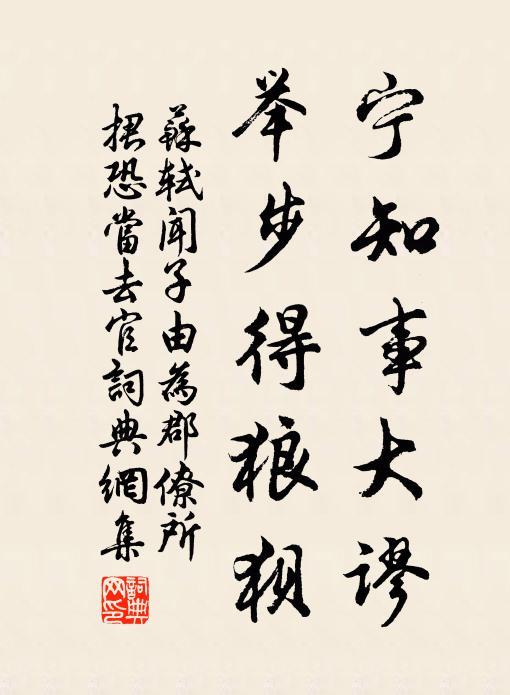 宁知事大谬
举步得狼狈
蘇轼闻子由為郡僚所
捃恐當去官詞典網集
詞典網印